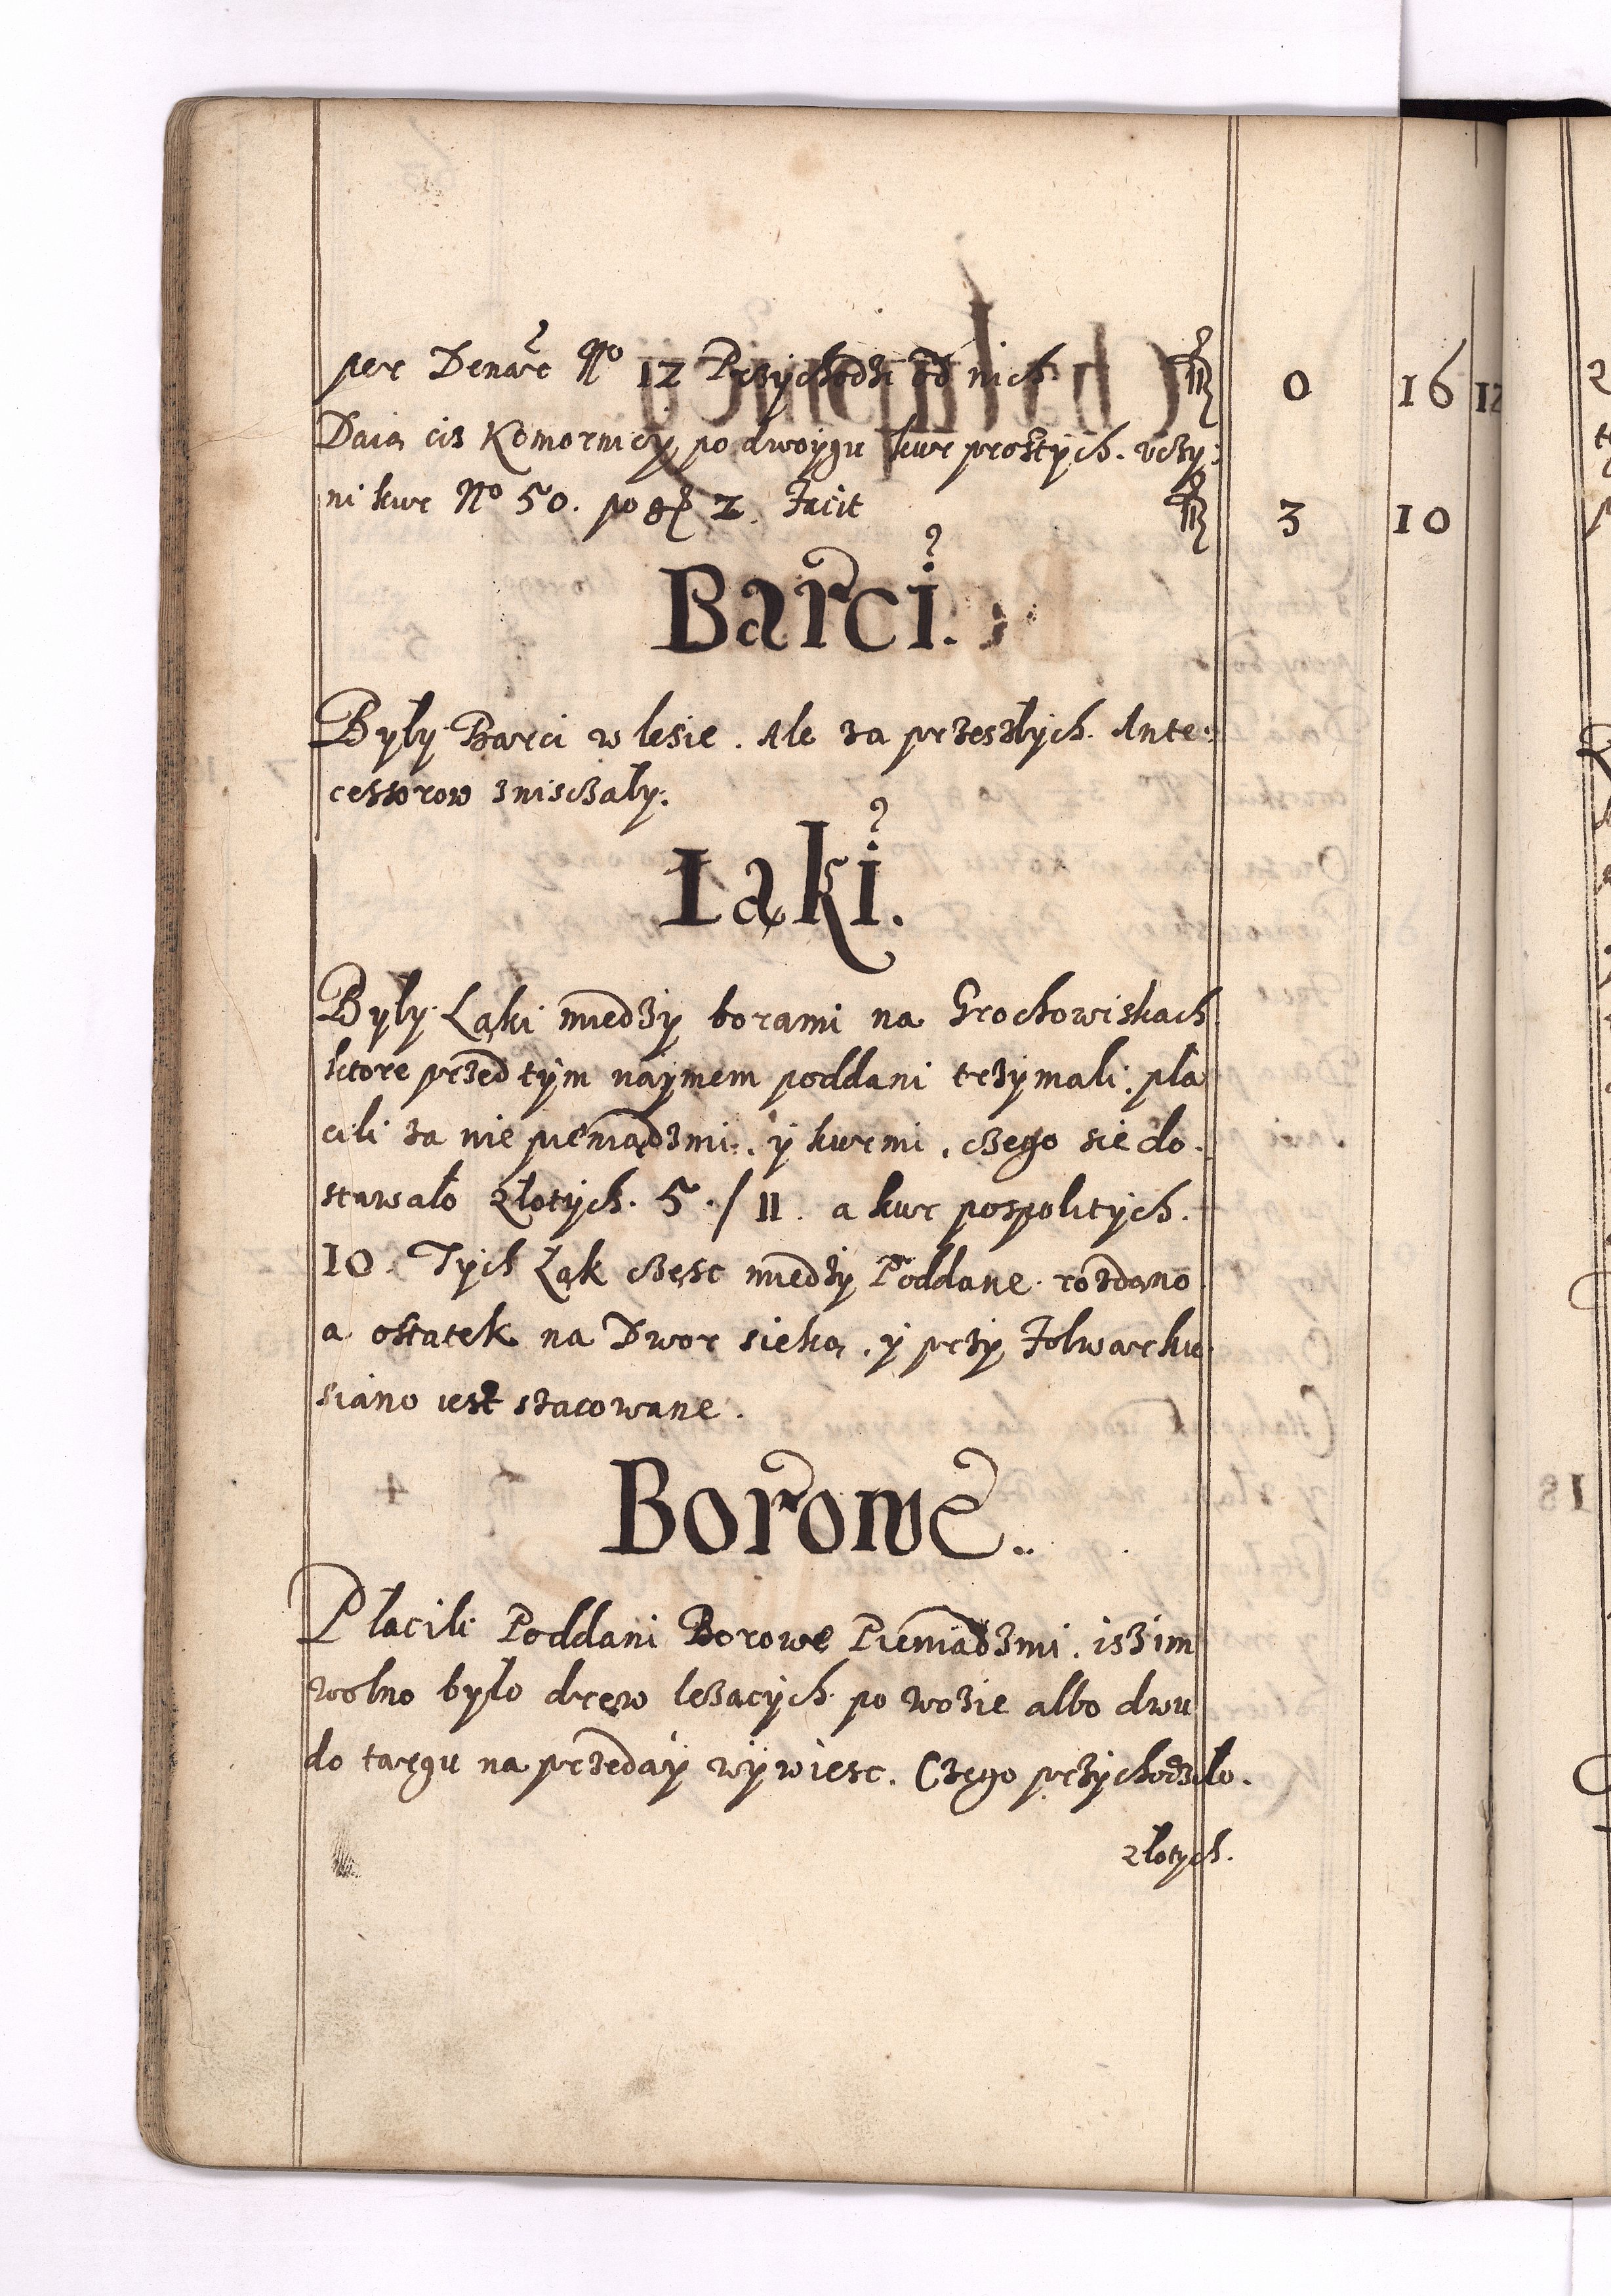 per Denar No 12 Przychodzi od nich fl 0 16 12
Daią ciz Komornicy po dwoygu kur prostych. vczy:
ni kur No 50. po gr 2. Facit fl 3 10
Barci.
Były Barci w lesie. Ale za przeszłych Ante:
cessorow zniszczały.
Łąki.
Były Łąki miedzy borami na Grochowiskach
ktore przed tym naymem poddani trzymali, pła
cili za nie pieniądzmi, y kurmi, czego sie do.
stawało złotych. 5./11. a kur pospolitych.
10. Tych Łąk częsc miedzy Poddane rozdano
a ostatek na Dwor sieką, y przy Folwarku
siano iest szacowane.
Borowe..
Płacili Poddani Borowe Pieniądzmi, isz im
wolno było drew leżacych po wozie albo dwu
do targu na przeday wywiesc. Czego przychodziło.
złotych.